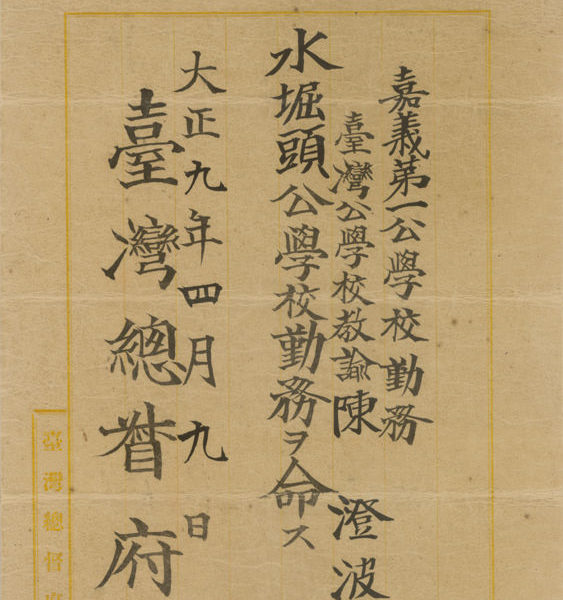 嘉義第一公學校勤務
臺灣公學校教諭陳澄波
水堀頭公學校勤務ヲ命ス
大正九年四月九日
臺灣總督府
臺灣總督府